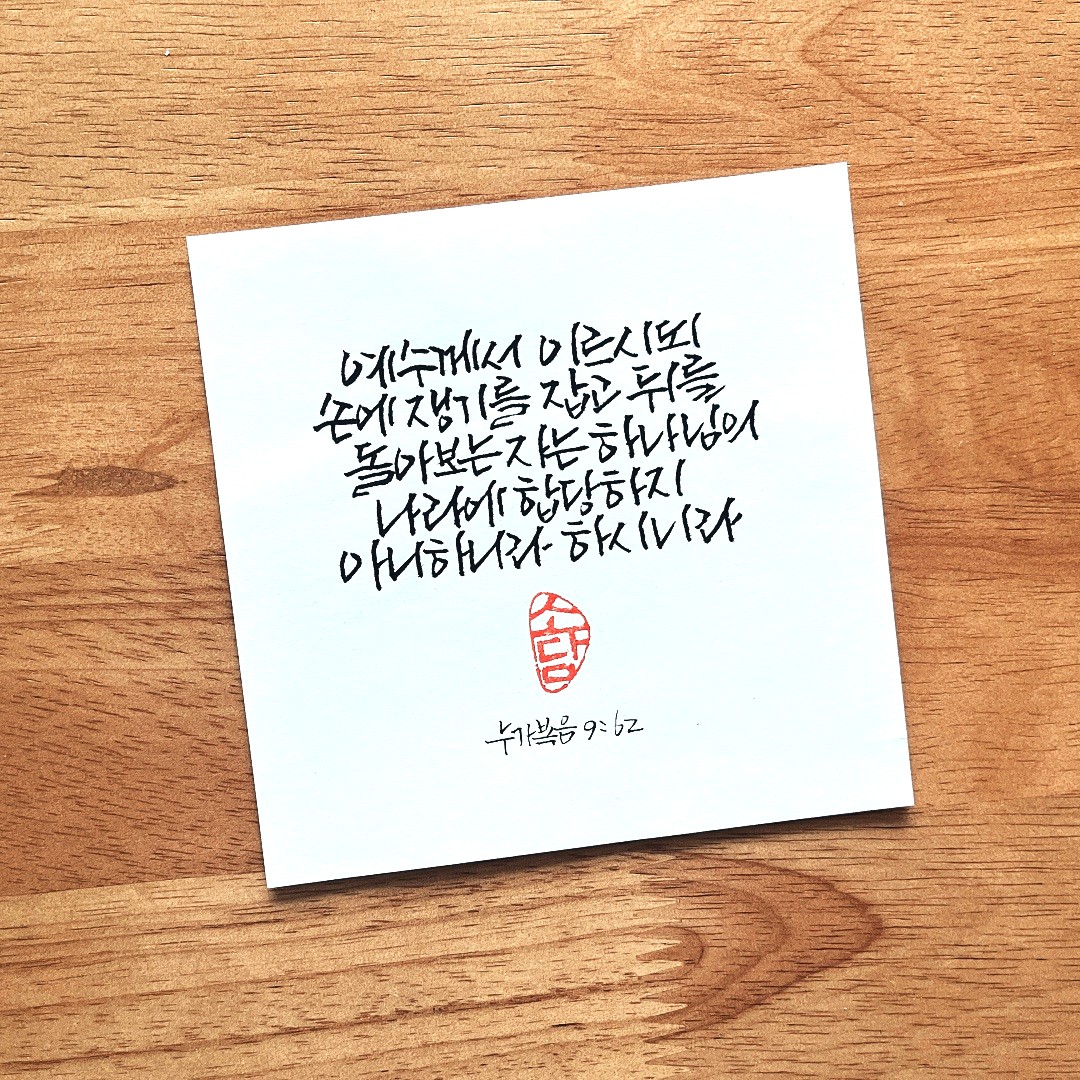 예수께서 이르시되
손에 쟁기를 잡고 뒤를
돌아보는 자는 하나님의
나라에 합당하지
아니하니라 하시니라
소담
누가복음 9:62